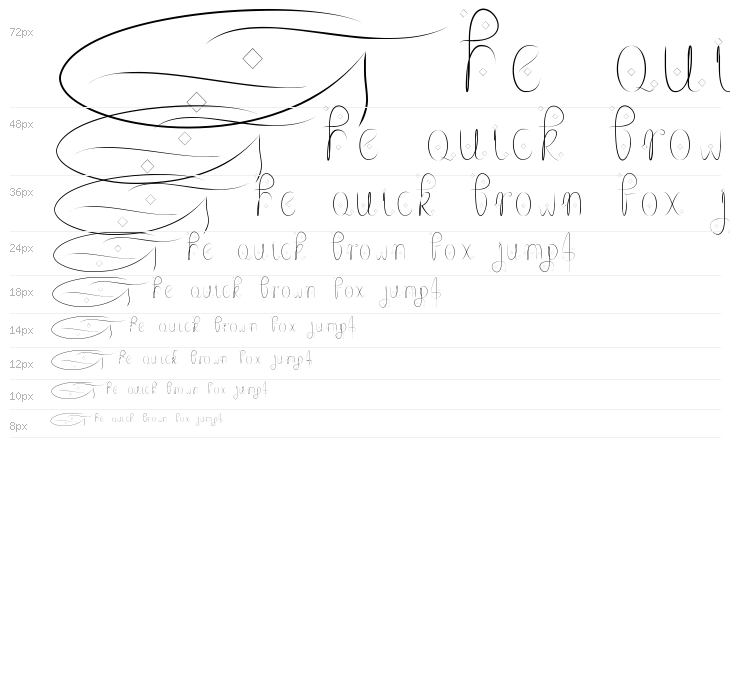 72px The qui
48px The quick brow
36px The quick brown fox j
24px The quick brown fox jumps
18px The quick brown fox jumps
14px The quick brown fox jumps
12px The quick brown fox jumps
10px The quick brown fox jumps
8px The quick brown fox jumps